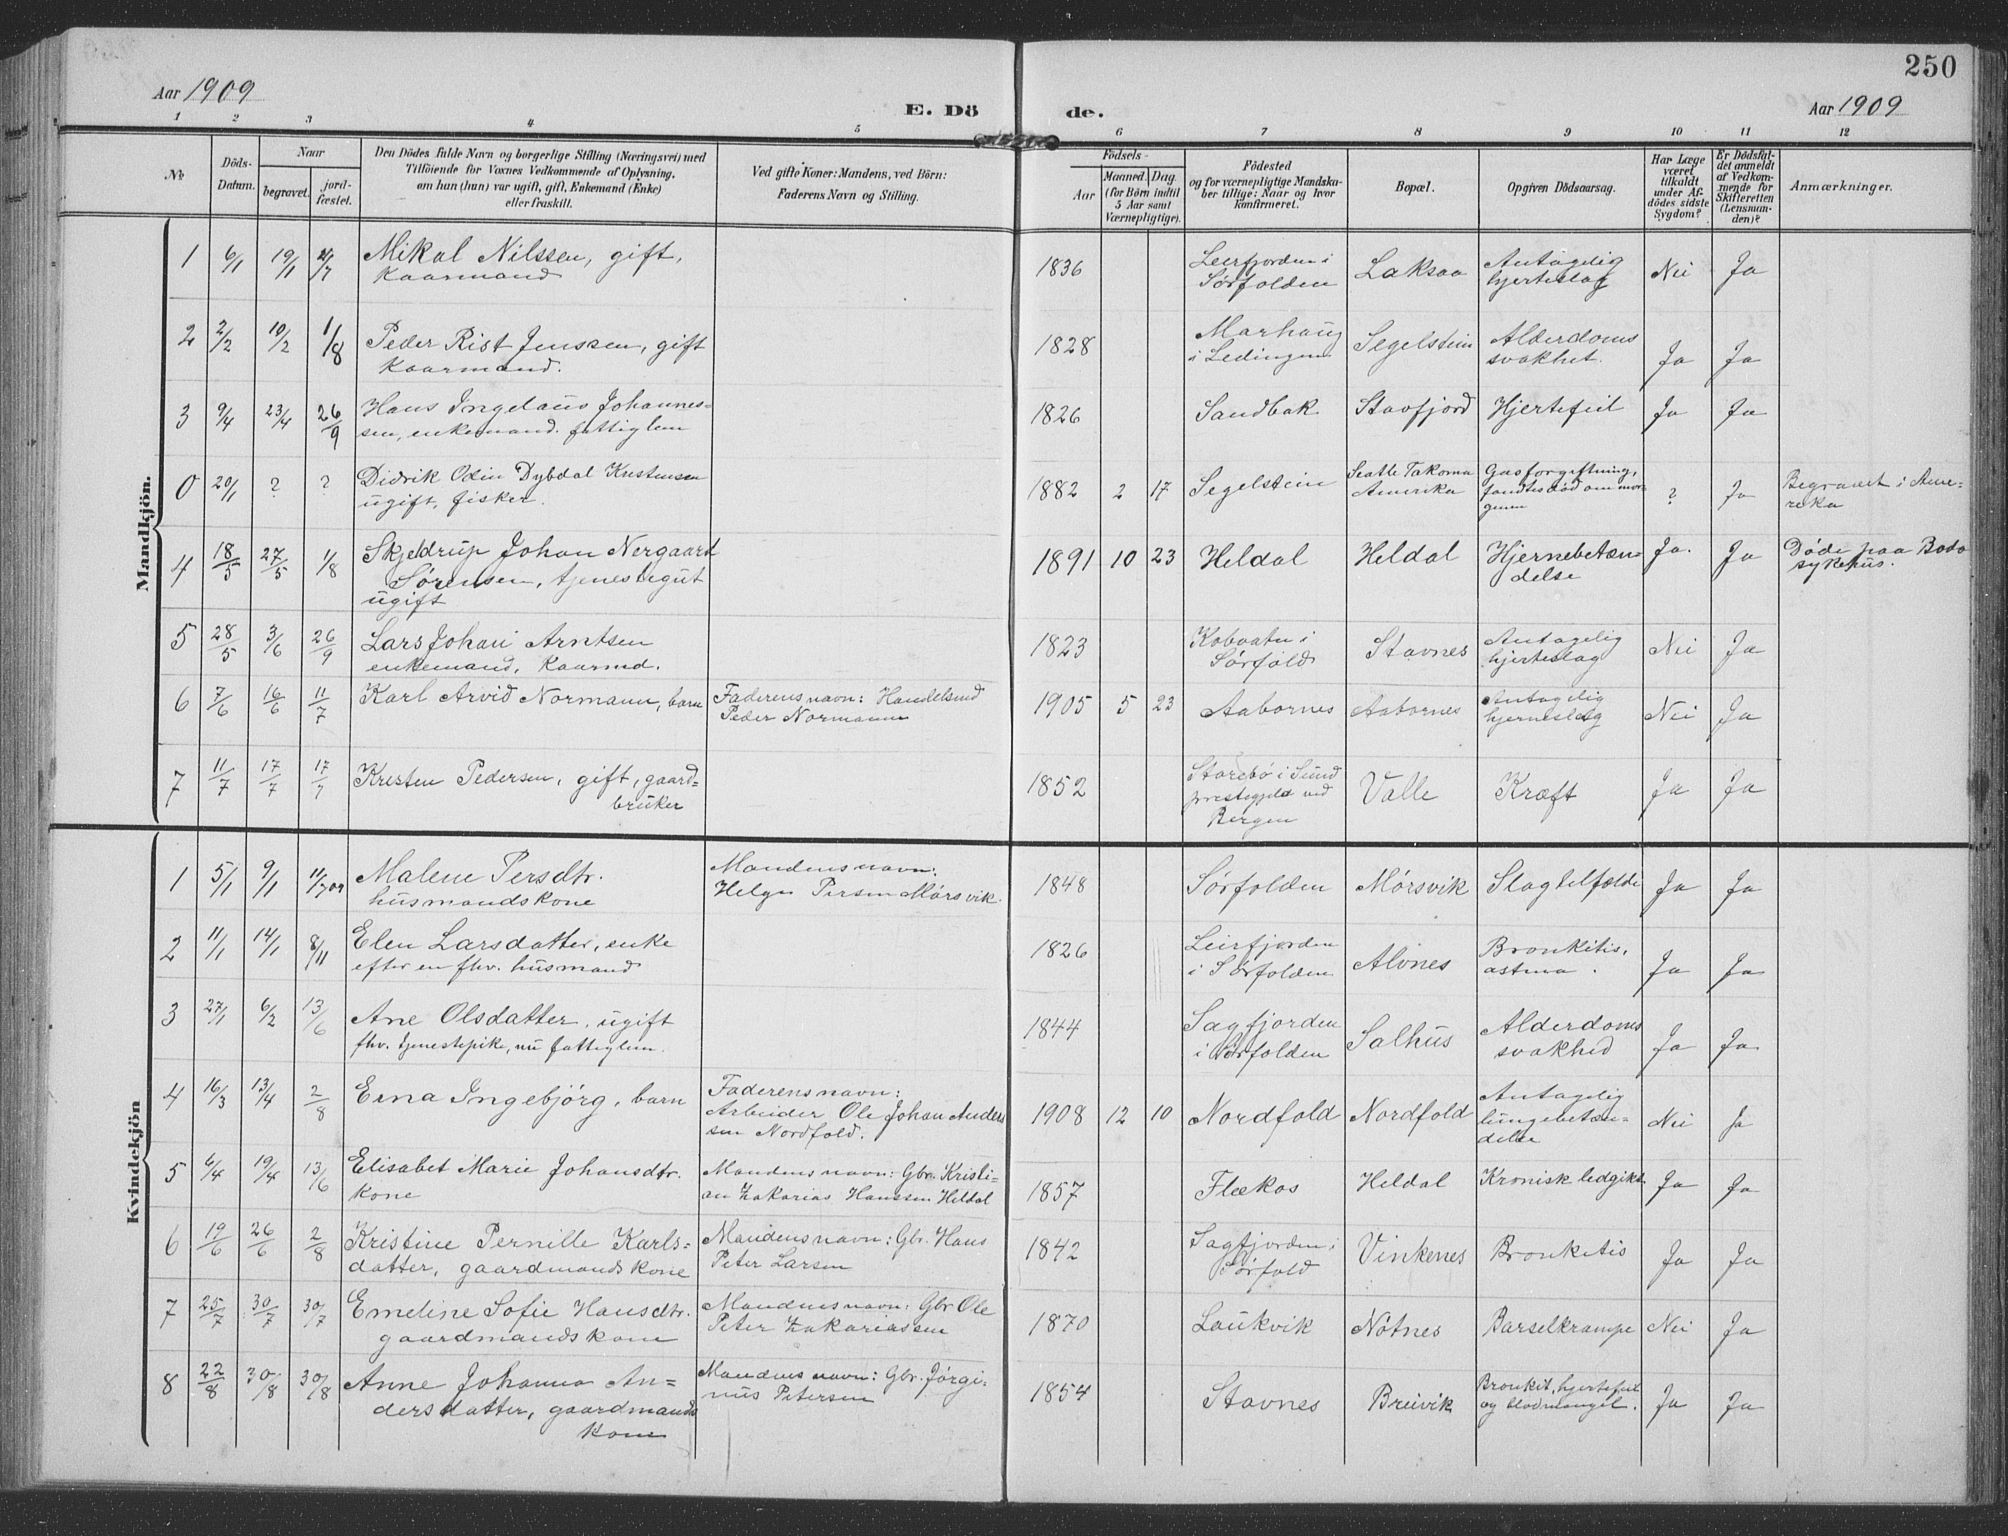 250
Aar 1909
E. Dö de.
Aar 1909
1 2 3 4 5 6 7 8 9 10 11 12
No
Döds-Datum.
Naar
begravet.
jord-fæstet.
Den Dödes fulde Navn og borgerlige Stilling (Næringsvei) med
Tilföiende for Voxnes Vedkommende af Oplysning,
om han (hun) var ugift, gift, Enkemand (Enke)
eller fraskilt.
Ved gifte Koner: Mandens, ved Börn:
Faderens Navn og Stilling.
Födsels-
Aar
Maaned. Dag.
(for Börn indtil
5 Aar samt
Værnepligtige).
Födested
og for værnepligtige Mandska-
ber tillige: Naar og hvor
konfirmeret.
Bopæl.
Opgiven Dödsaarsag.
Har Læge
været
tilkaldt
under Af-
dödes sidste
Sygdom?
Er Dödsfal-
det anmeldt
af Vedkom-
mende for
Skifteretten
(Lensman-
den)?
Anmærkninger.
Mandkjön.
1 6/1 19/1 Mikal Nilssen, gift, 1836 Leirfjorden i Laksaa Antagelig Nei Ja
kaarmand Sørfolden hjerteslag
2 2/2 10/2 1/8 Peder Rist Jenssen, gift 1828 Marhaug Segelstein Alderdoms Ja Ja
kaarmand. i Lødingen svakhet.
3 9/4 23/4 26/9 Hans Ingelaus Johannes- 1826 Sandbak Stavfjord Hjertefeil Ja Ja
sen, enkemand. fattiglem
0 20/1 ? ? Didrik Odin Dybdal Kristensen 1882 2 17 Segelstein Seatle Takoma Gasforgiftning, ? Ja Begravet i Ame-
ugift, fisker. Amerika fandtes død om mor- rika
genen
4 18/5 27/5 1/8 Skjeldrup Johan Nergaard 1891 10 23 Heldal Heldal Hjernebetæn- Ja. Ja Døde paa Bodø
Sørensen, tjenestegut delse sykehus.
ugift
5 28/5 3/6 26/9 Lars Johan Arntsen 1823 Kobvatn i Stavnes Antagelig Nei Ja
enkemand, kaarmd. Sørfold hjerteslag
6 7/6 16/6 11/7 Karl Arvid Normann, barn Faderens navn: Handelsmd 1905 5 23 Aabornes Aabornes Antagelig Nei Ja
Peder Normann hjerneslag
7 11/7 17/7 17/7 Kristen Pedersen, gift, gaard- 1852 Storebø i Sund Valle Kræft Ja Ja
bruker prestegjeld ved
Bergen
Kvindekjön
1 5/1 9/1 11/7 09 Malene Persdtr. Mandens navn: 1848 Sørfolden Mørsvik Slagtilfælde Ja Ja
husmandskone Helge Persen Mørsvik.
2 11/1 14/1 8/11 Elen Larsdatter, enke 1826 Leirfjorden Alvnes Bronkitis, Ja Ja
efter en fhv. husmand i Sørfolden astma.
3 27/1 6/2 13/6 Ane Olsdatter, ugift 1844 Sagfjorden Salhus Alderdoms Ja Ja
fhv. tjenestepike, nu fattiglem. i Sørfolden svakhed
4 16/3 13/4 2/8 Erna Ingebjørg, barn Faderens navn: 1908 12 10 Nordfold Nordfold Antagelig Nei Ja
Arbeider Ole Johan Anders lungebetæn-
sen Nordfold. delse
5 6/4 19/4 13/6 Elisabet Marie Johansdtr. Mandens navn: Gbr. Kristi- 1857 Flekos Heldal Kronisk ledgikt Ja Ja
kone an Zakarias Hanssen Heldal
6 19/6 26/6 2/8 Kristine Pernille Karls- Mandens navn: Gbr. Hans 1842 Sagfjorden i Vinkenes Bronkitis Ja Ja
datter, gaardmandskone Peter Larsen Sørfold
7 25/7 30/7 30/7 Emeline Sofie Hansdtr. Mandens navn: Gbr Ole 1870 Laukvik Nøtnes Barselkrampe Nei Ja
gaardmandskone Peter Zakariassen
8 22/8 30/8 30/8 Anne Johanna An- Mandens navn: Gbr. Jørgi- 1854 Stavnes Breivik Bronkit, hjertefeil Ja Ja
dersdatter, gaardmands nus Petersen og blodmangel.
kone